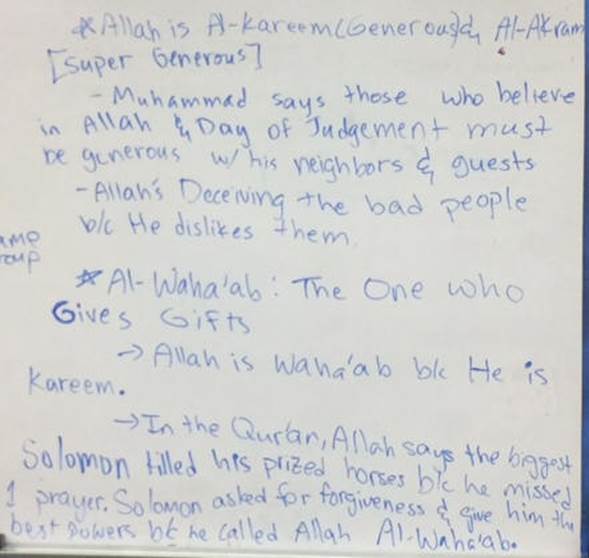 *Allah is Al-Kareem(Generous)& Al-Akram
[Super Generous]
- Muhammad says those who believe
in Allah & Day of Judgement must
be generous w/ his neighbors & guests
- Allah's Deceiving the bad people
b/c He dislikes them
* Al-Waha'ab: The One who
Gives Gifts
→ Allah is Waha'ab b/c He is
Kareem.
→ In the Qur'an, Allah says the biggest
Solomon killed his prized horses b/c he missed
1 prayer. Solomon asked for forgiveness & give him the
best powers b/c he called Allah Al-Waha'ab.